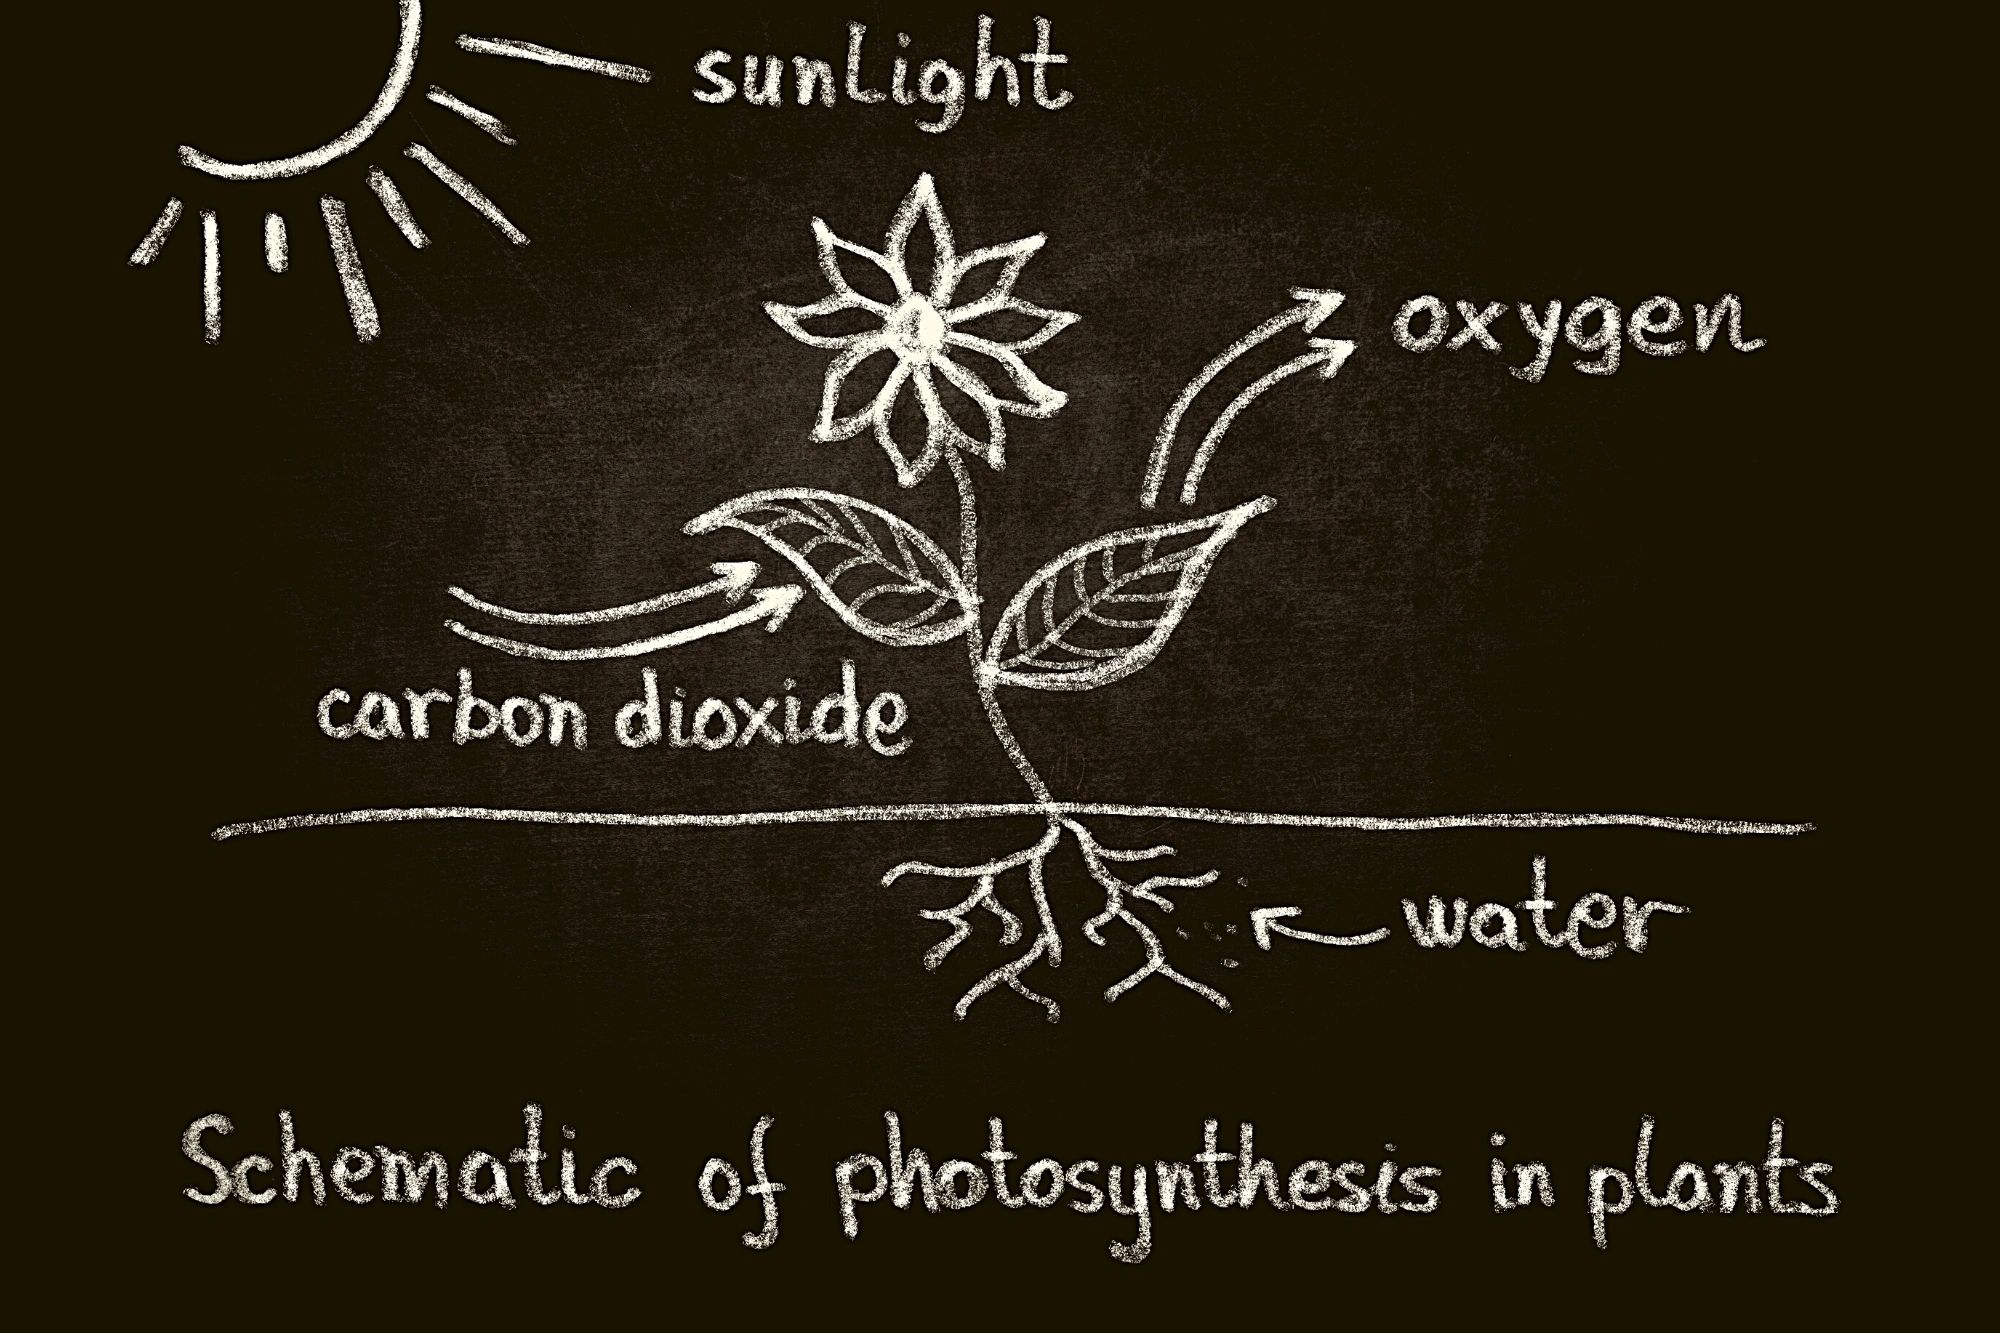 sunlight
oxygen
carbon dioxide
water
Schematic of photosynthesis in plants